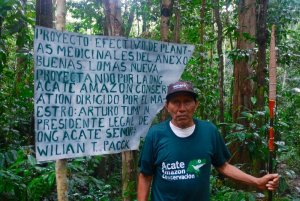 PROYECTO EFECTIVO DE PLANT
AS MEDICINALES DEL ANEXO
BUENAS LOMAS NUEVA
PROYECTANDO POR LA ING
ACATE AMAZON CONSERV
ATION DIRIGIDO POR EL MA
ESTRO: ARTURO TUMI
PRESIDENTE LEGAL DE
ONG ACATE SEÑOR
WILIAN T. PACK
Acate
Amazon
Conservation